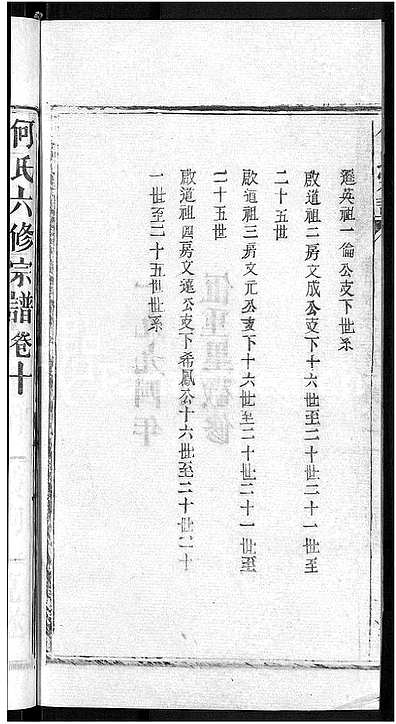 遜英祖一倫公支下世系
啟道祖二房文成公支下十六世至二十世二十一世至
二十五世
啟道祖三房文元公支下十六世至二十世二十一世至
二十五世
啟道祖四房文選公支下希鳳公十六世至二十世二十
一世至二十五世世系
何氏六修宗譜卷十